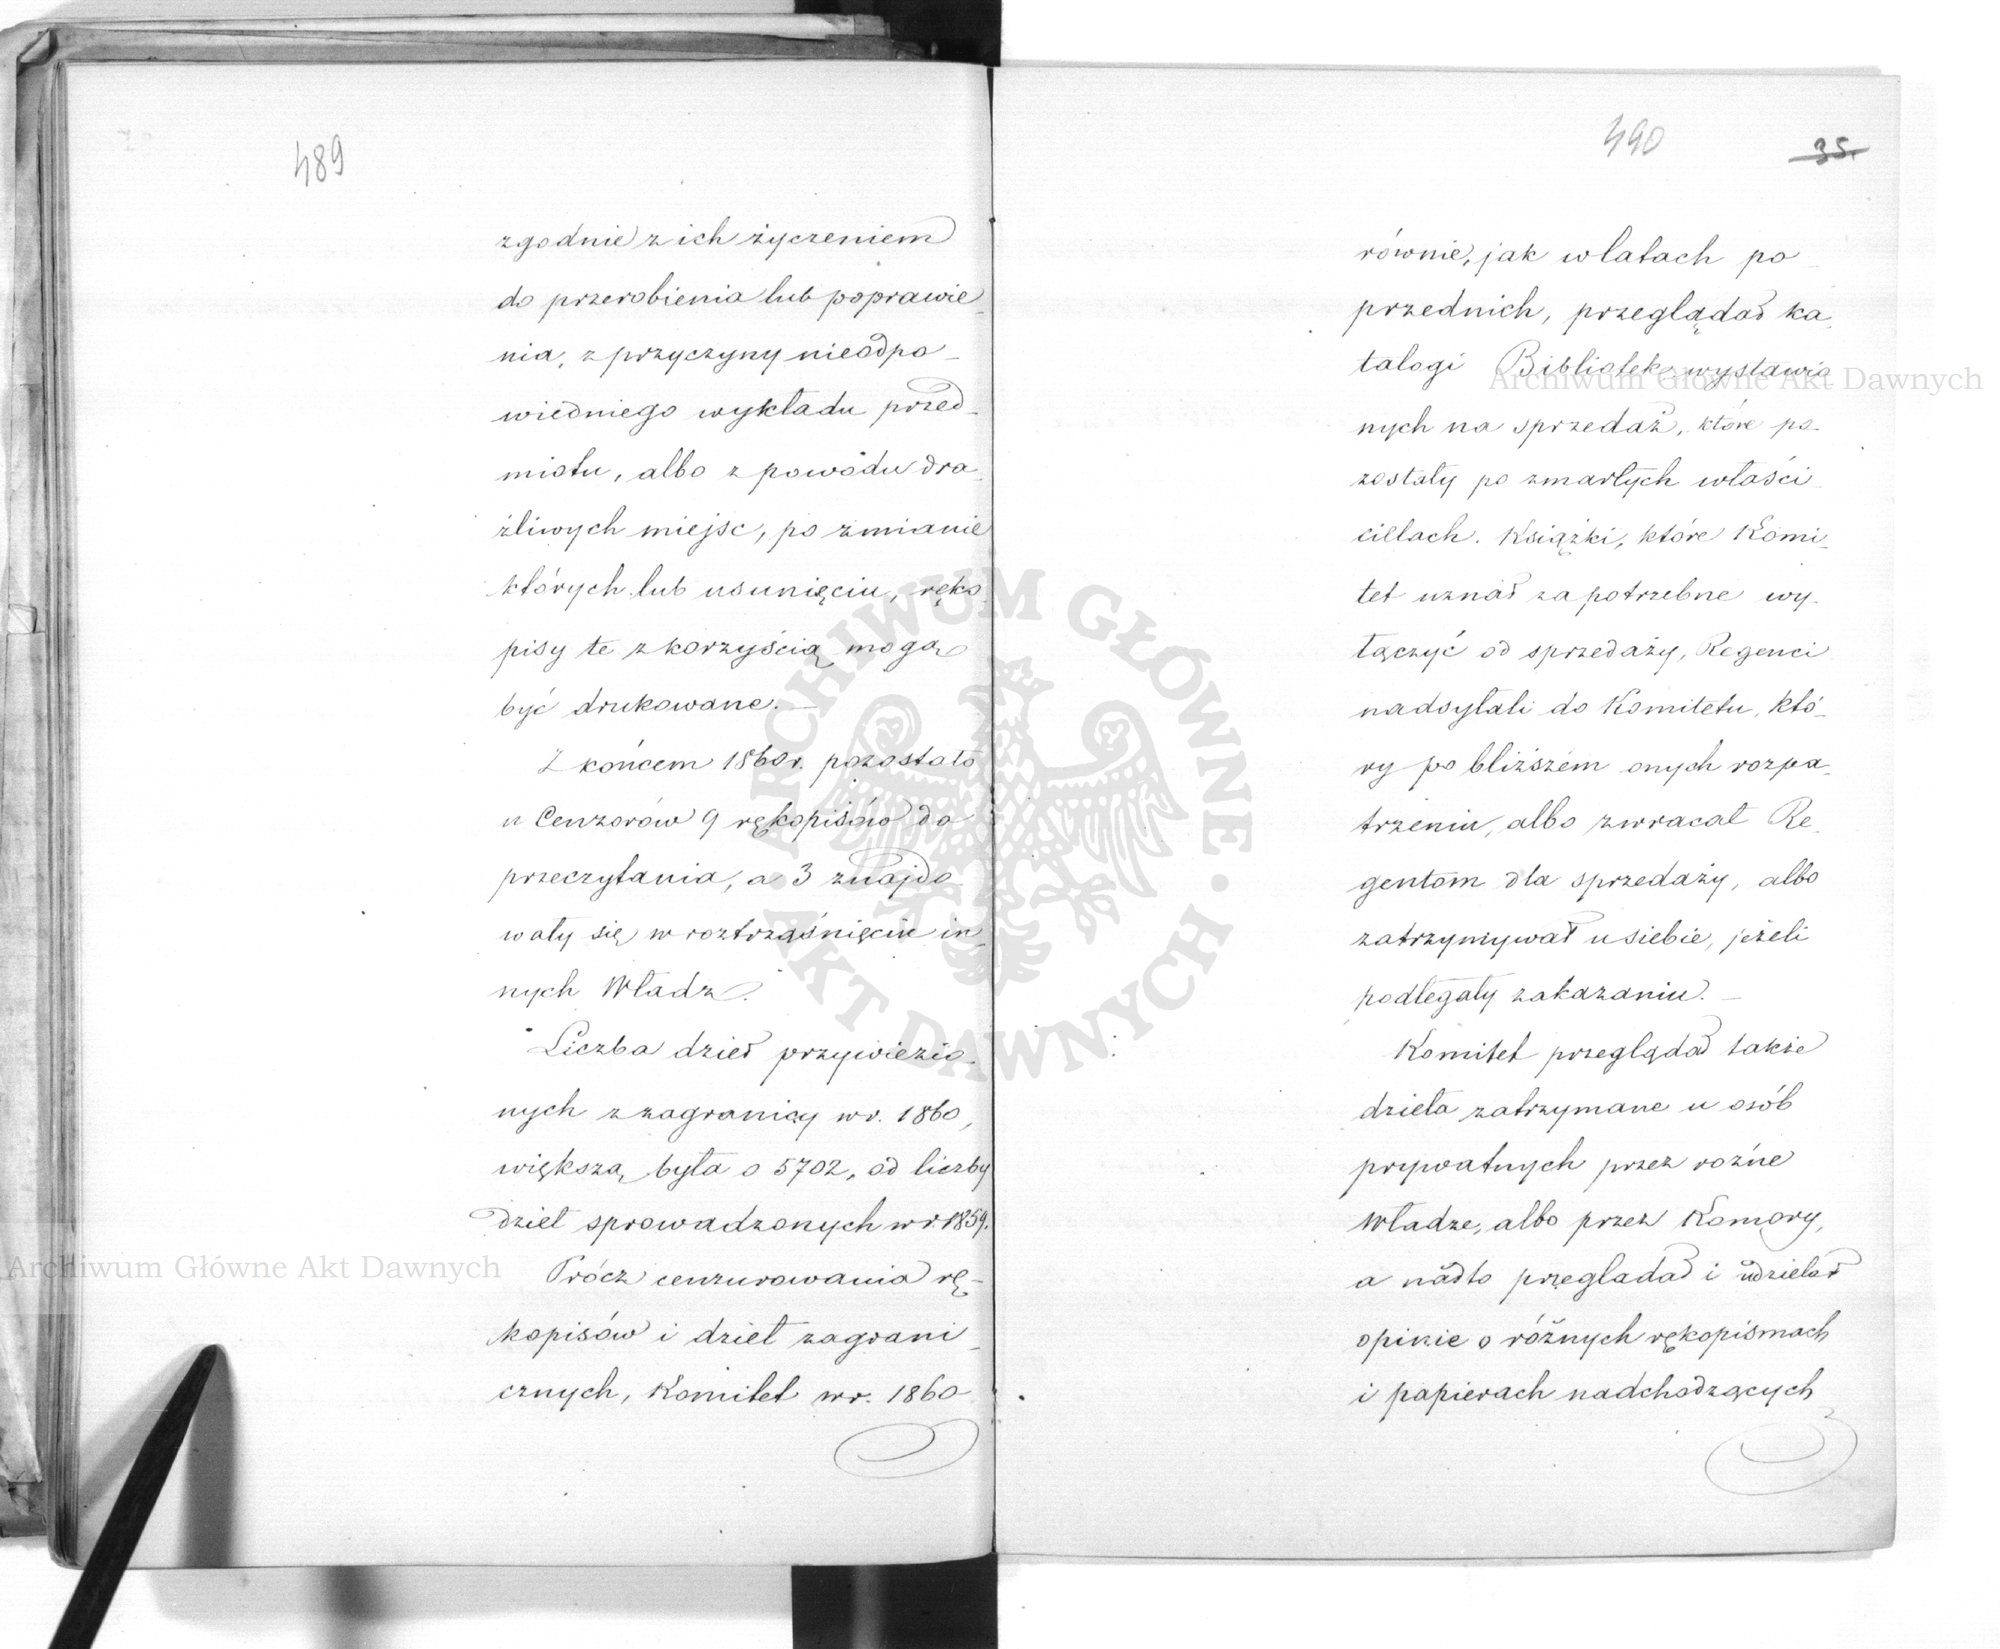 489
zgodnie z ich życzeniem
do przerobienia lub poprawie_
nia, z przyczyny nieodpo_
wiedniego wykładu przed_
miotu, albo z powodu dra_
żliwych miejsc, po zmianie
których lub usunięciu, ręko_
pisy te z korzyścią mogą
być drukowane. _
Z końcem 1860 r. pozostało
u Cenzorów 9 rękopisów do
przeczytania, a 3 znajdo_
wały się w roztrząśnięciu in_
nych Władz.
Liczba dzieł przywiezio_
nych z zagranicy w r. 1860,
większą była o 5702, od liczby
dzieł sprowadzonych w r. 1859.
Prócz cenzurowania rę_
kopisów i dzieł zagrani_
cznych, Komitet w r. 1860
490
35.
równie, jak w latach po_
przednich, przeglądał ka_
talogi Bibliotek wystawio_
nych na sprzedaż, które po_
zostały po zmarłych właści_
cielach. Książki, które Komi_
tet uznał za potrzebne wy_
łączyć od sprzedaży, Regenci
nadsyłali do Komitetu, któ_
ry po bliższém onych rozpa_
trzeniu, albo zwracał Re_
gentom dla sprzedaży, albo
zatrzymywał u siebie, jeżeli
podlegały zakazaniu. _
Komitet przeglądał także
dzieła zatrzymane u osób
prywatnych przez rożne
Władze, albo przez Komory,
a nadto przeglądał i udzielał
opinie o różnych rękopismach
i papierach nadchodzących
Archiwum Główne Akt Dawnych
Archiwum Główne Akt Dawnych
ARCHIWUM GŁÓWNE • AKT DAWNYCH •